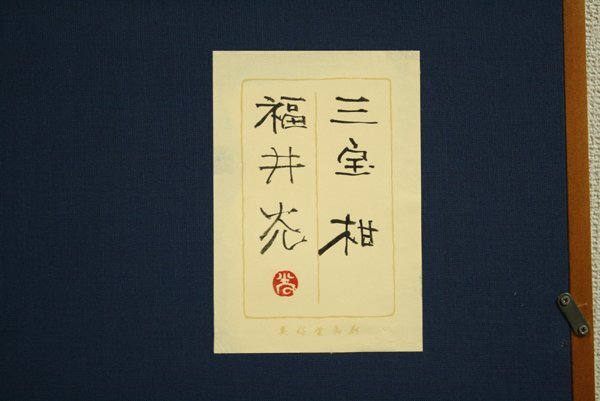 三宝柑
福井光